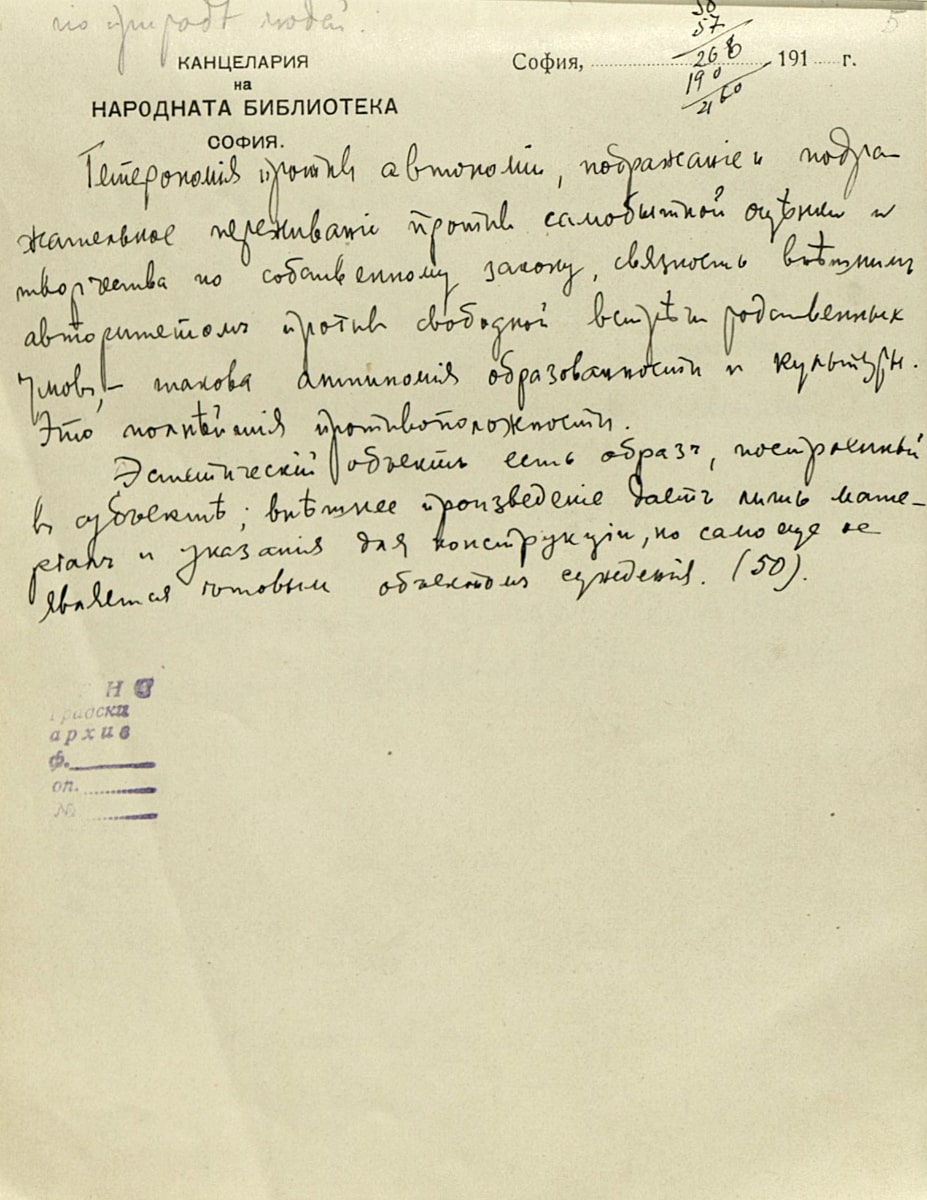 по природѣ людей.
5
50
57
268
190
2160
КАНЦЕЛАРИЯ
на
НАРОДНАТА БИБЛИОТЕКА
СОФИЯ.
София, 191 г.
Гетерономія против автономіи, подражаніе и подра-
жательное переживаніе против самобытной оцѣнки и
творчества по собственному закону, связность внѣшним
авторитетомъ против свободной встрѣчи родственных
умовъ, – такова антиномія образованности и культуры.
Это полнѣйшія противоположности.
Эстетическій объектъ есть образъ, построенный
въ субъектѣ; внѣшнее произведеніе даетъ лишь мате-
ріалъ и указанія для конструкціи, но само еще не
является готовым объектомъ сужденія. (50).
архив
ф.
оп.
№